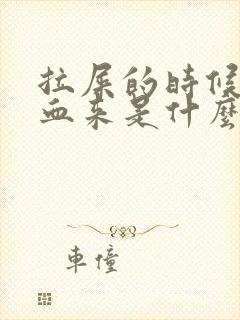 拉屎的時候
血来是什麼
車懂